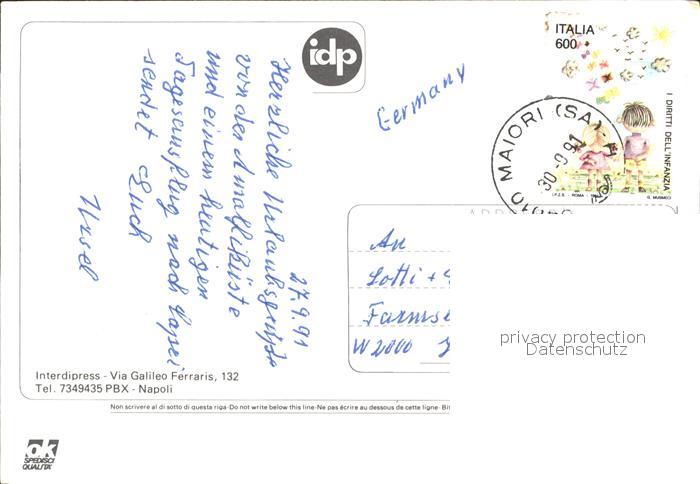 idp
27.9.91
Herzliche Urlaubsgrüße
von der Amalfiküste
und einem heutigen
Tagesausflug nach Capri
sendet Euch
Ursel
Germany
ITALIA
600
I DIRITTI DELL'INFANZIA
I.P.Z.S. - ROMA
G. MUSMECI
MAIORI (SA)
30-9.91
An
Lotti +
Farmse
W 2000
privacy protection
Datenschutz
Interdipress - Via Galileo Ferraris, 132
Tel. 7349435 PBX - Napoli
Non scrivere al di sotto di questa riga-Do not write below this line-Ne pas écrire au dessous de cette ligne- Bit
ok
SPEDISCI
QUALITÀ